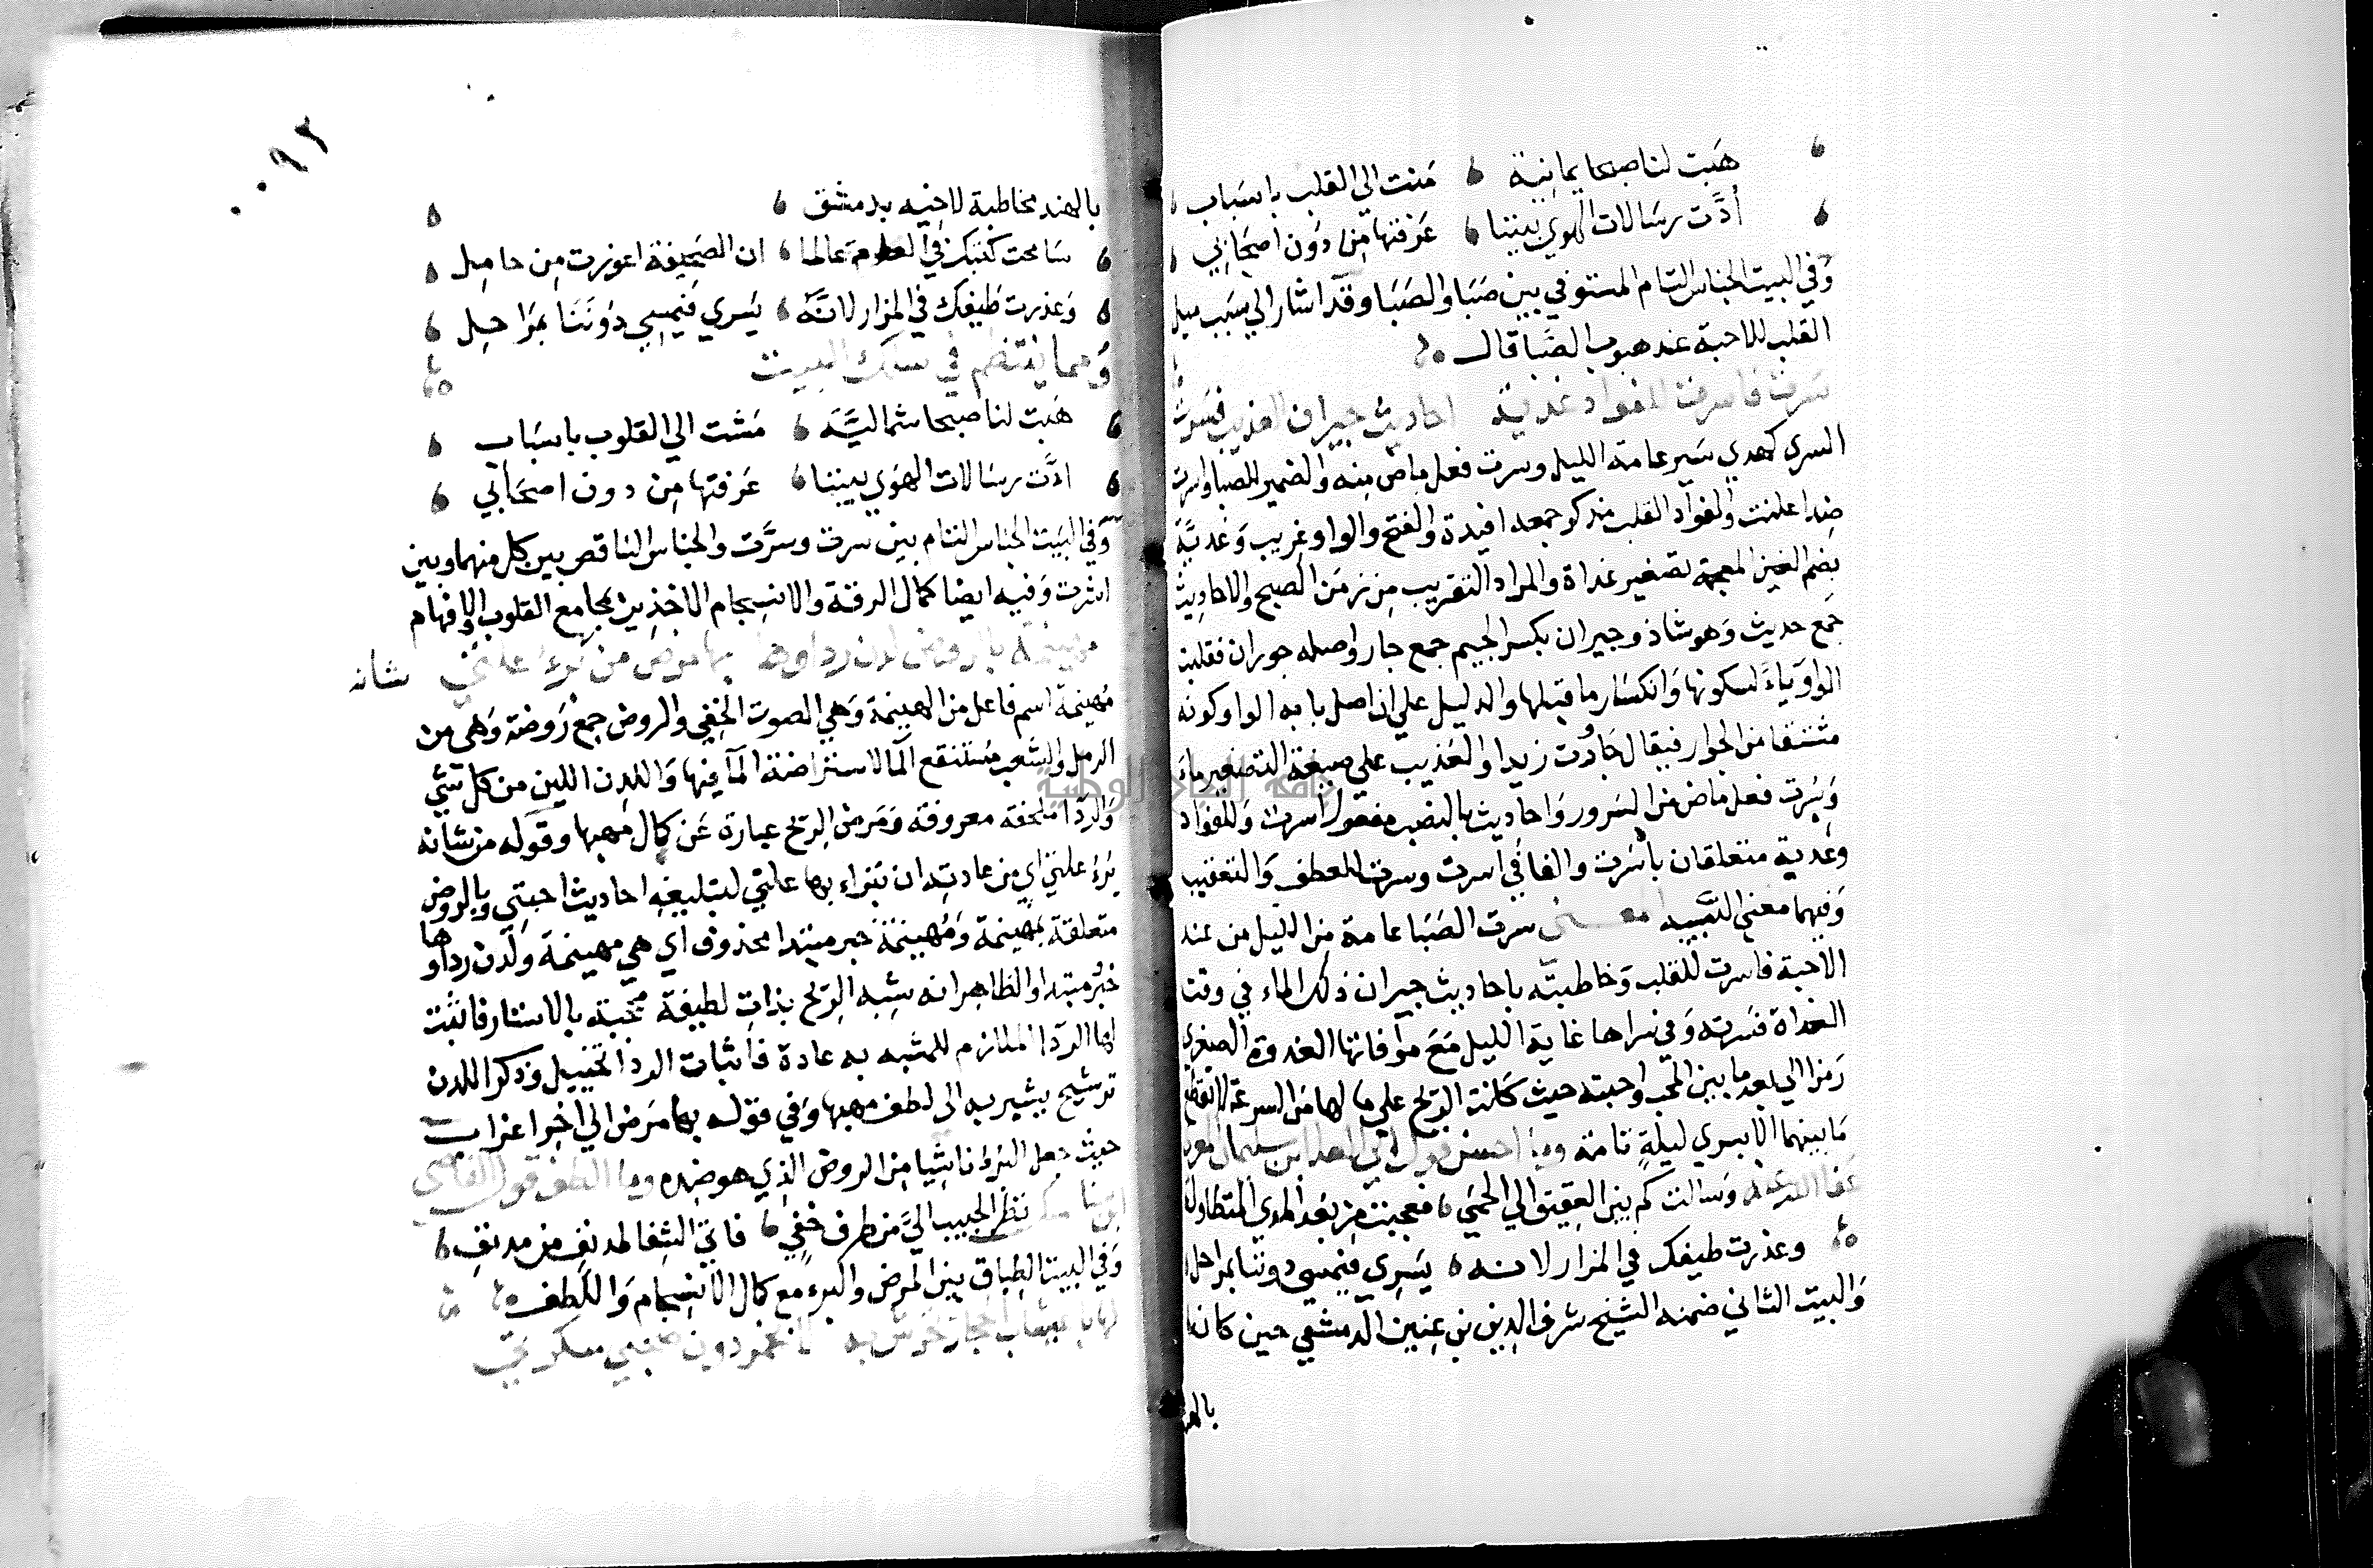 هبت لنا صبحا يمانية متت الي القلب باسباب
أدت رسالات الهوي بيننا عرفتها من دون اصحابي
وفي البيت الجناس التام المستوفي بين صبا والصبا وقد اشار الي سبب ميل
القلب للاحبة عند هبوب الصبا قال
سرت فاسرت للفواد غدية احاديث جيران العذيب فسرت
السري كهدي سير عامة الليل وسرت فعل ماض منه والضمير للصبا واسرت
ضد اعلنت والفواد القلب مذكر جمعه افيدة والفتح والواو غريب وغدية
بضم الغين المعجمة تصغير غداة والمراد التقريب من زمن الصبح والاحاديث
جمع حديث وهو شاذ وجيران بكسر الجيم جمع جار واصله جوران فقلبت
الواو ياء لسكونها وانكسار ما قبلها والدليل علي ان اصل يا به الواو كونه
مشتقا من الجوار فيقال جاورت زيدا والعذيب علي صيغة التصغير ماء
وسرت فعل ماض من السرور واحاديث بالنصب مفعول اسرت وللفواد
وغدية متعلقان باسرت والفا في اسرت وسرت للعطف والتعقيب
وفيهما معني التسبب المعـــني سرت الصبا عامة من الليل من عند
الاحبة فاسرت للقلب وخاطبته باحاديث جيران ذلك الماء في وقت
الغداة فسرته وفي سراها غاية الليل مع موافاتها الغدوة الصغري
رمز الي بعد ما بين المحب واحبته حيث كانت الريح علي ما لها من السرعة لا تقطع
ما بينهما الا بسري ليلة تامة وما احسن قول ابي العلا بن سليمان المعري
عفا الله عنه وسالت كم بين العقيق الي الحمي فعجبت من بعد المدي المتطاول
وعذرت طيفك في المزار لانه يسري فيمسي دوننا بمراحل
والبيت الثاني ضمنه الشيخ شرف الدين بن عنين الدمشقي حين كان
بالهند
٠٠٩٢
بالهند مخاطبة لاخيه بدمشق
سامحت كتبك في القطيعة عالما ان الصحيفة اعوزت من حامل
وعذرت طيفك في المزار لانه يسري فيمسي دوننا بمراحل
ومما ينتظم في سلك البيت
هبت لنا صبحا شمالية مشت الي القلوب باسباب
ادت رسالات الهوي بيننا عرفتها من دون اصحابي
وفي البيت الجناس التام بين سرت وسرت والجناس الناقص بين كل منهما وبين
اسرت وفيه ايضا كمال الرقة والانسجام الاخذين بمجامع القلوب والافهام
مهينمة بالروض لدن رداوها بها مرض من شانه برء علتي
مهينمة اسم فاعل من الهينمة وهي الصوت الخفي والروض جمع روضة وهي من
الرمل والشعب مستنقع الما لاستراضة الما فيها واللدن اللين من كل شي
والردا ملحفة معروفة ومرض الريح عبارة عن كمال مهبها وقوله من شانه
برء علتي اي من عادته ان تبراء بها علتي لتبليغه احاديث احبتي وبالروض
متعلقة بمهينمة ومهينمة خبر مبتدا محذوف اي هي مهينمة ولدن رداوها
خبر مبتدا والظاهر انه شبه الريح بذات لطيفة محجبة بالاستار فاثبت
لها الردا الملازم للمشبه به عادة فاثبات الردا تخييل وذكر اللدن
ترشيح يشير به الي لطف مهبها وفي قوله بها مرض الي اخره اغراب
حيث جعل البرء ناشيا من المرض الذي هو ضده وما الطف قول القاضي
ابن سنا نظر الحبيب الي من طرف خفي فاتي الشفا لمدنف من مدنف
وفي البيت الطباق بين المرض والبرء مع كمال الانسجام واللطف
لها باعيشاب الحجاز تحرش به لا بخمر دون صحبي سكرتي